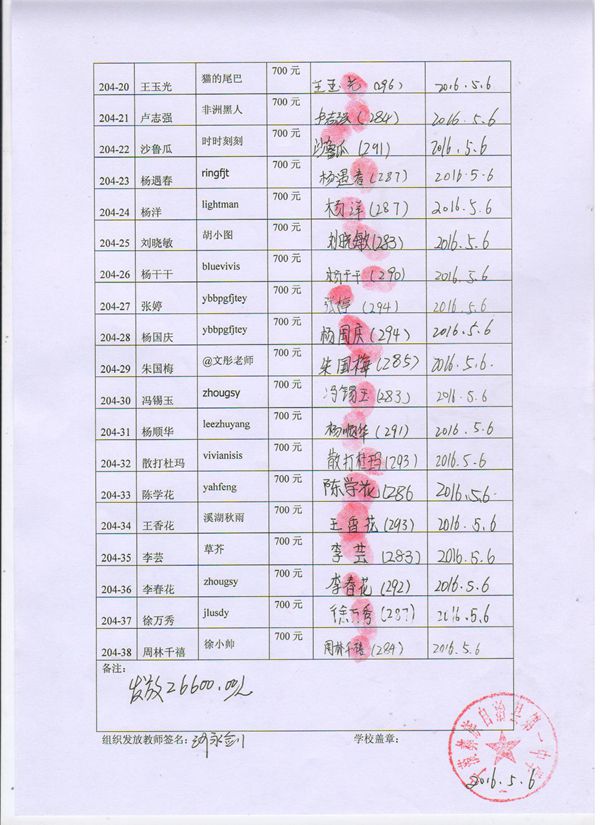 204-20 王玉光 猫的尾巴 700 元 王玉光 (296) 2016.5.6
204-21 卢志强 非洲黑人 700 元 卢志强 (284) 2016.5.6
204-22 沙鲁瓜 时时刻刻 700 元 沙鲁瓜 (291) 2016.5.6
204-23 杨遇春 ringfjt 700 元 杨遇春 (287) 2016.5.6
204-24 杨洋 lightman 700 元 杨洋 (287) 2016.5.6
204-25 刘晓敏 胡小图 700 元 刘晓敏 (283) 2016.5.6
204-26 杨干干 bluevivis 700 元 杨干干 (290) 2016.5.6
204-27 张婷 ybbpgfjtey 700 元 张婷 (294) 2016.5.6
204-28 杨国庆 ybbpgfjtey 700 元 杨国庆 (294) 2016.5.6
204-29 朱国梅 @文彤老师 700 元 朱国梅 (285) 2016.5.6
204-30 冯锡玉 zhougsy 700 元 冯锡玉 (283) 2016.5.6
204-31 杨顺华 leezhuyang 700 元 杨顺华 (291) 2016.5.6
204-32 散打杜玛 vivianisis 700 元 散打杜玛 (293) 2016.5.6
204-33 陈学花 yahfeng 700 元 陈学花 (286 2016.5.6.
204-34 王香花 溪湖秋雨 700 元 王香花 (293) 2016.5.6
204-35 李芸 草芥 700 元 李芸 (283) 2016.5.6
204-36 李春花 zhougsy 700 元 李春花 (292) 2016.5.6
204-37 徐万秀 jlusdy 700 元 徐万秀 (287) 2016.5.6
204-38 周林千禧 徐小帅 700 元 周林千禧 (284) 2016.5.6
备注:
发放26600.00元
组织发放教师签名: 学校盖章:
族自治县第一中学
2016.5.6